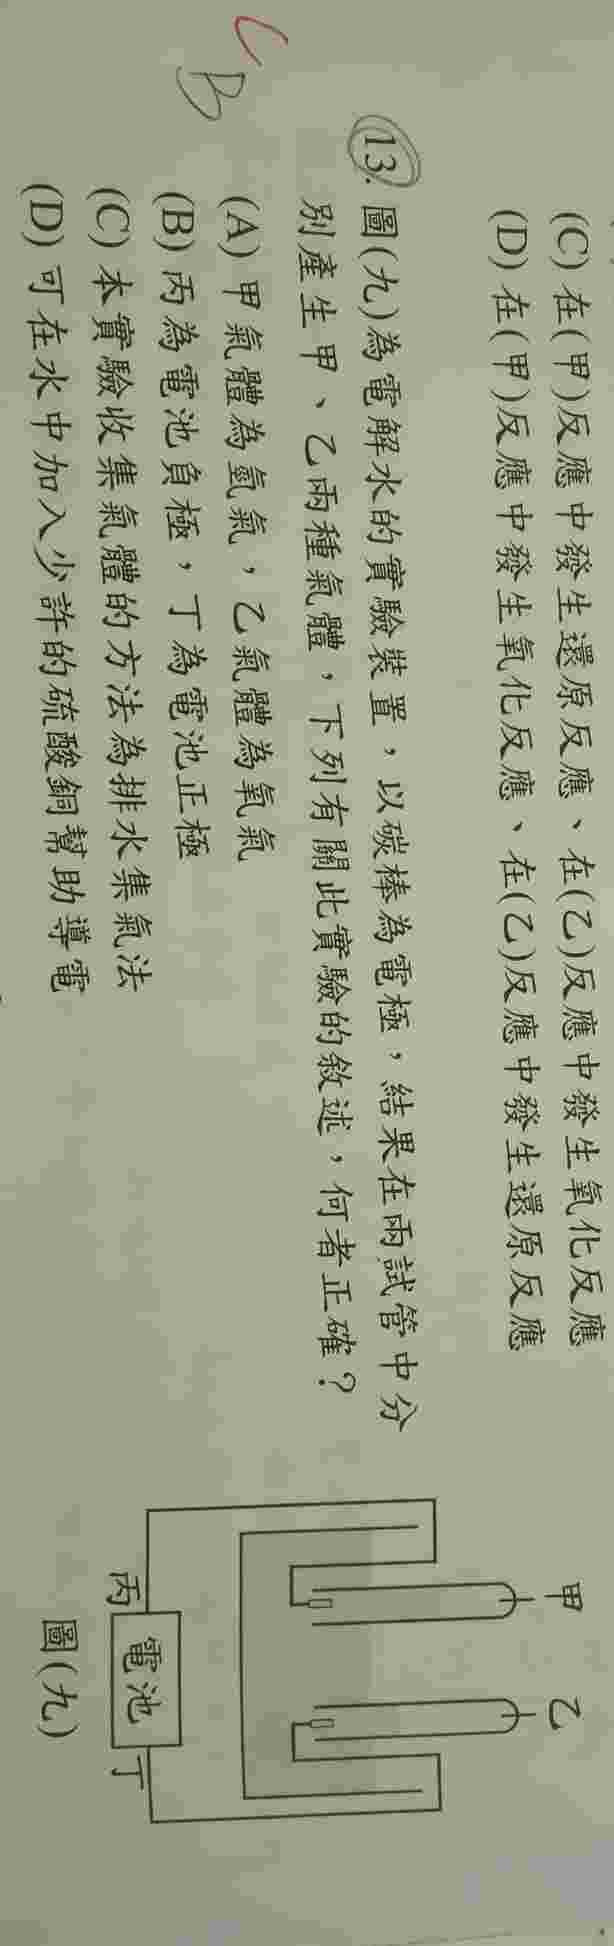 (C) 在(甲)反應中發生還原反應、在(乙)反應中發生氧化反應
(D) 在(甲)反應中發生氧化反應、在(乙)反應中發生還原反應
C
B
13. 圖(九)為電解水的實驗裝置，以碳棒為電極，結果在兩試管中分
別產生甲、乙兩種氣體，下列有關此實驗的敘述，何者正確？
(A) 甲氣體為氫氣，乙氣體為氧氣
(B) 丙為電池負極，丁為電池正極
(C) 本實驗收集氣體的方法為排水集氣法
(D) 可在水中加入少許的硫酸銅幫助導電
甲
乙
丙
電池
丁
圖(九)